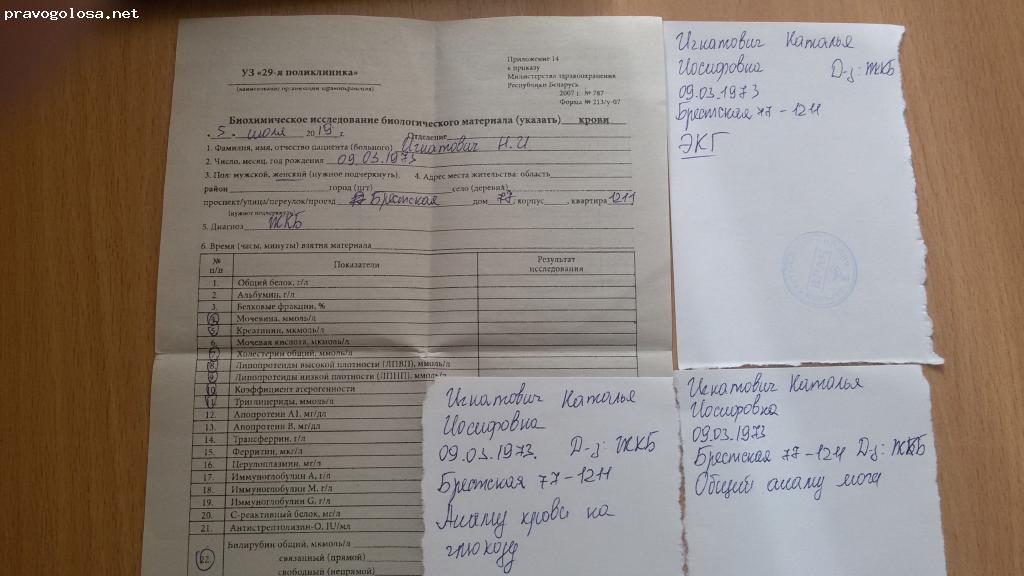 pravogolosa.net
УЗ «29-я поликлиника»
(наименование организации здравоохранения)
Приложение 14
к приказу
Министерства здравоохранения
Республики Беларусь
2007 г. № 787
Форма № 213/у-07
Биохимическое исследование биологического материала (указать) крови
5. июля 2019 г.
Отделение
1. Фамилия, имя, отчество пациента (больного) Игнатович Н.И
2. Число, месяц, год рождения 09.03.1973
3. Пол: мужской, женский (нужное подчеркнуть). 4. Адрес места жительства: область
район город (пгт) село (деревня)
проспект/улица/переулок/проезд Брестская дом 77, корпус , квартира 1211
(нужное подчеркнуть)
5. Диагноз ЖКБ
6. Время (часы, минуты) взятия материала
№ п/п Показатели Результат исследования
1. Общий белок, г/л
2. Альбумин, г/л
3. Белковые фракции, %
4. Мочевина, ммоль/л
5. Креатинин, мкмоль/л
6. Мочевая кислота, мкмоль/л
7. Холестерин общий, ммоль/л
8. Липопротеиды высокой плотности (ЛПВП), ммоль/л
9. Липопротеиды низкой плотности (ЛПНП), ммоль/л
10. Коэффициент атерогенности
11. Триглицериды, ммоль/л
12. Апопротеин А1, мг/дл
13. Апопротеин В, мг/дл
14. Трансферрин, г/л
15. Ферритин, мкг/л
16. Церулоплазмин, мг/л
17. Иммуноглобулин А, г/л
18. Иммуноглобулин М, г/л
19. Иммуноглобулин G, г/л
20. С-реактивный белок, мг/л
21. Антистрептолизин-О, IU/мл
22. Билирубин общий, мкмоль/л
связанный (прямой)
свободный (непрямой)
Игнатович Наталья
Иосифовна Д-з: ЖКБ
09.03.1973
Брестская 77-1211
ЭКГ
Игнатович Наталья
Иосифовна
09.03.1973. Д-з: ЖКБ
Брестская 77-1211
Анализ крови на
глюкозу
Игнатович Наталья
Иосифовна
09.03.1973
Брестская 77-1211 Д-з: ЖКБ
Общий анализ мочи